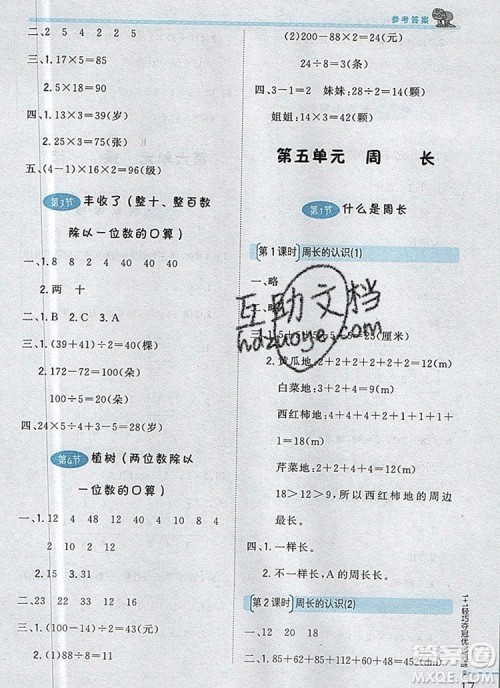 参考答案
二、2 5 4 2 2 5
三、1.17×5=85
2.15×3=45
四、1.13×3=39(岁)
2.25×3=75(张)
五、(4-1)×16×2=96(级)
第3节 丰收了(整十、整百数
除以一位数的口算)
一、1.8 8 2 4 40 40
2.两 十
二、1.B 2.C 3.A
三、1.(39+41)÷2=40(棵)
2.172-72=100(朵)
100÷5=20(朵)
四、24×5÷4+3-5=28(位)
第4节 植树(两位数除以
一位数的口算)
一、1.12 4 48 12 40 4 4
2 10 12 2
2.15 3.31
二、23 22 33 32 16 24
三、14 12 24 14 14 24
四、(1)88÷8=11(朵)
(2)200-88×2=24(元)
24÷8=3(条)
四、3-1=2 妹妹:28÷2=14(颗)
姐姐:14×3=42(颗)
第五单元 周 长
第1节 什么是周长
第1课时 周长的认识(1)
一、略
(厘米)
2.黄瓜地:2+2+2+2+2+2=12(m)
白菜地:
西红柿地:4+4+4+2+2+2=18(m)
芹菜地:
18>12>9,所以西红柿地的周边
最长。
四、1.一样长。
2.不一样长,A的周长长。
第2课时 周长的认识(2)
一、12 20 18
二、1.85+62+85+110+62+48=452(dm)
互助文档
hdzuoye.com
1+1轻巧夺冠优
答案圈
17